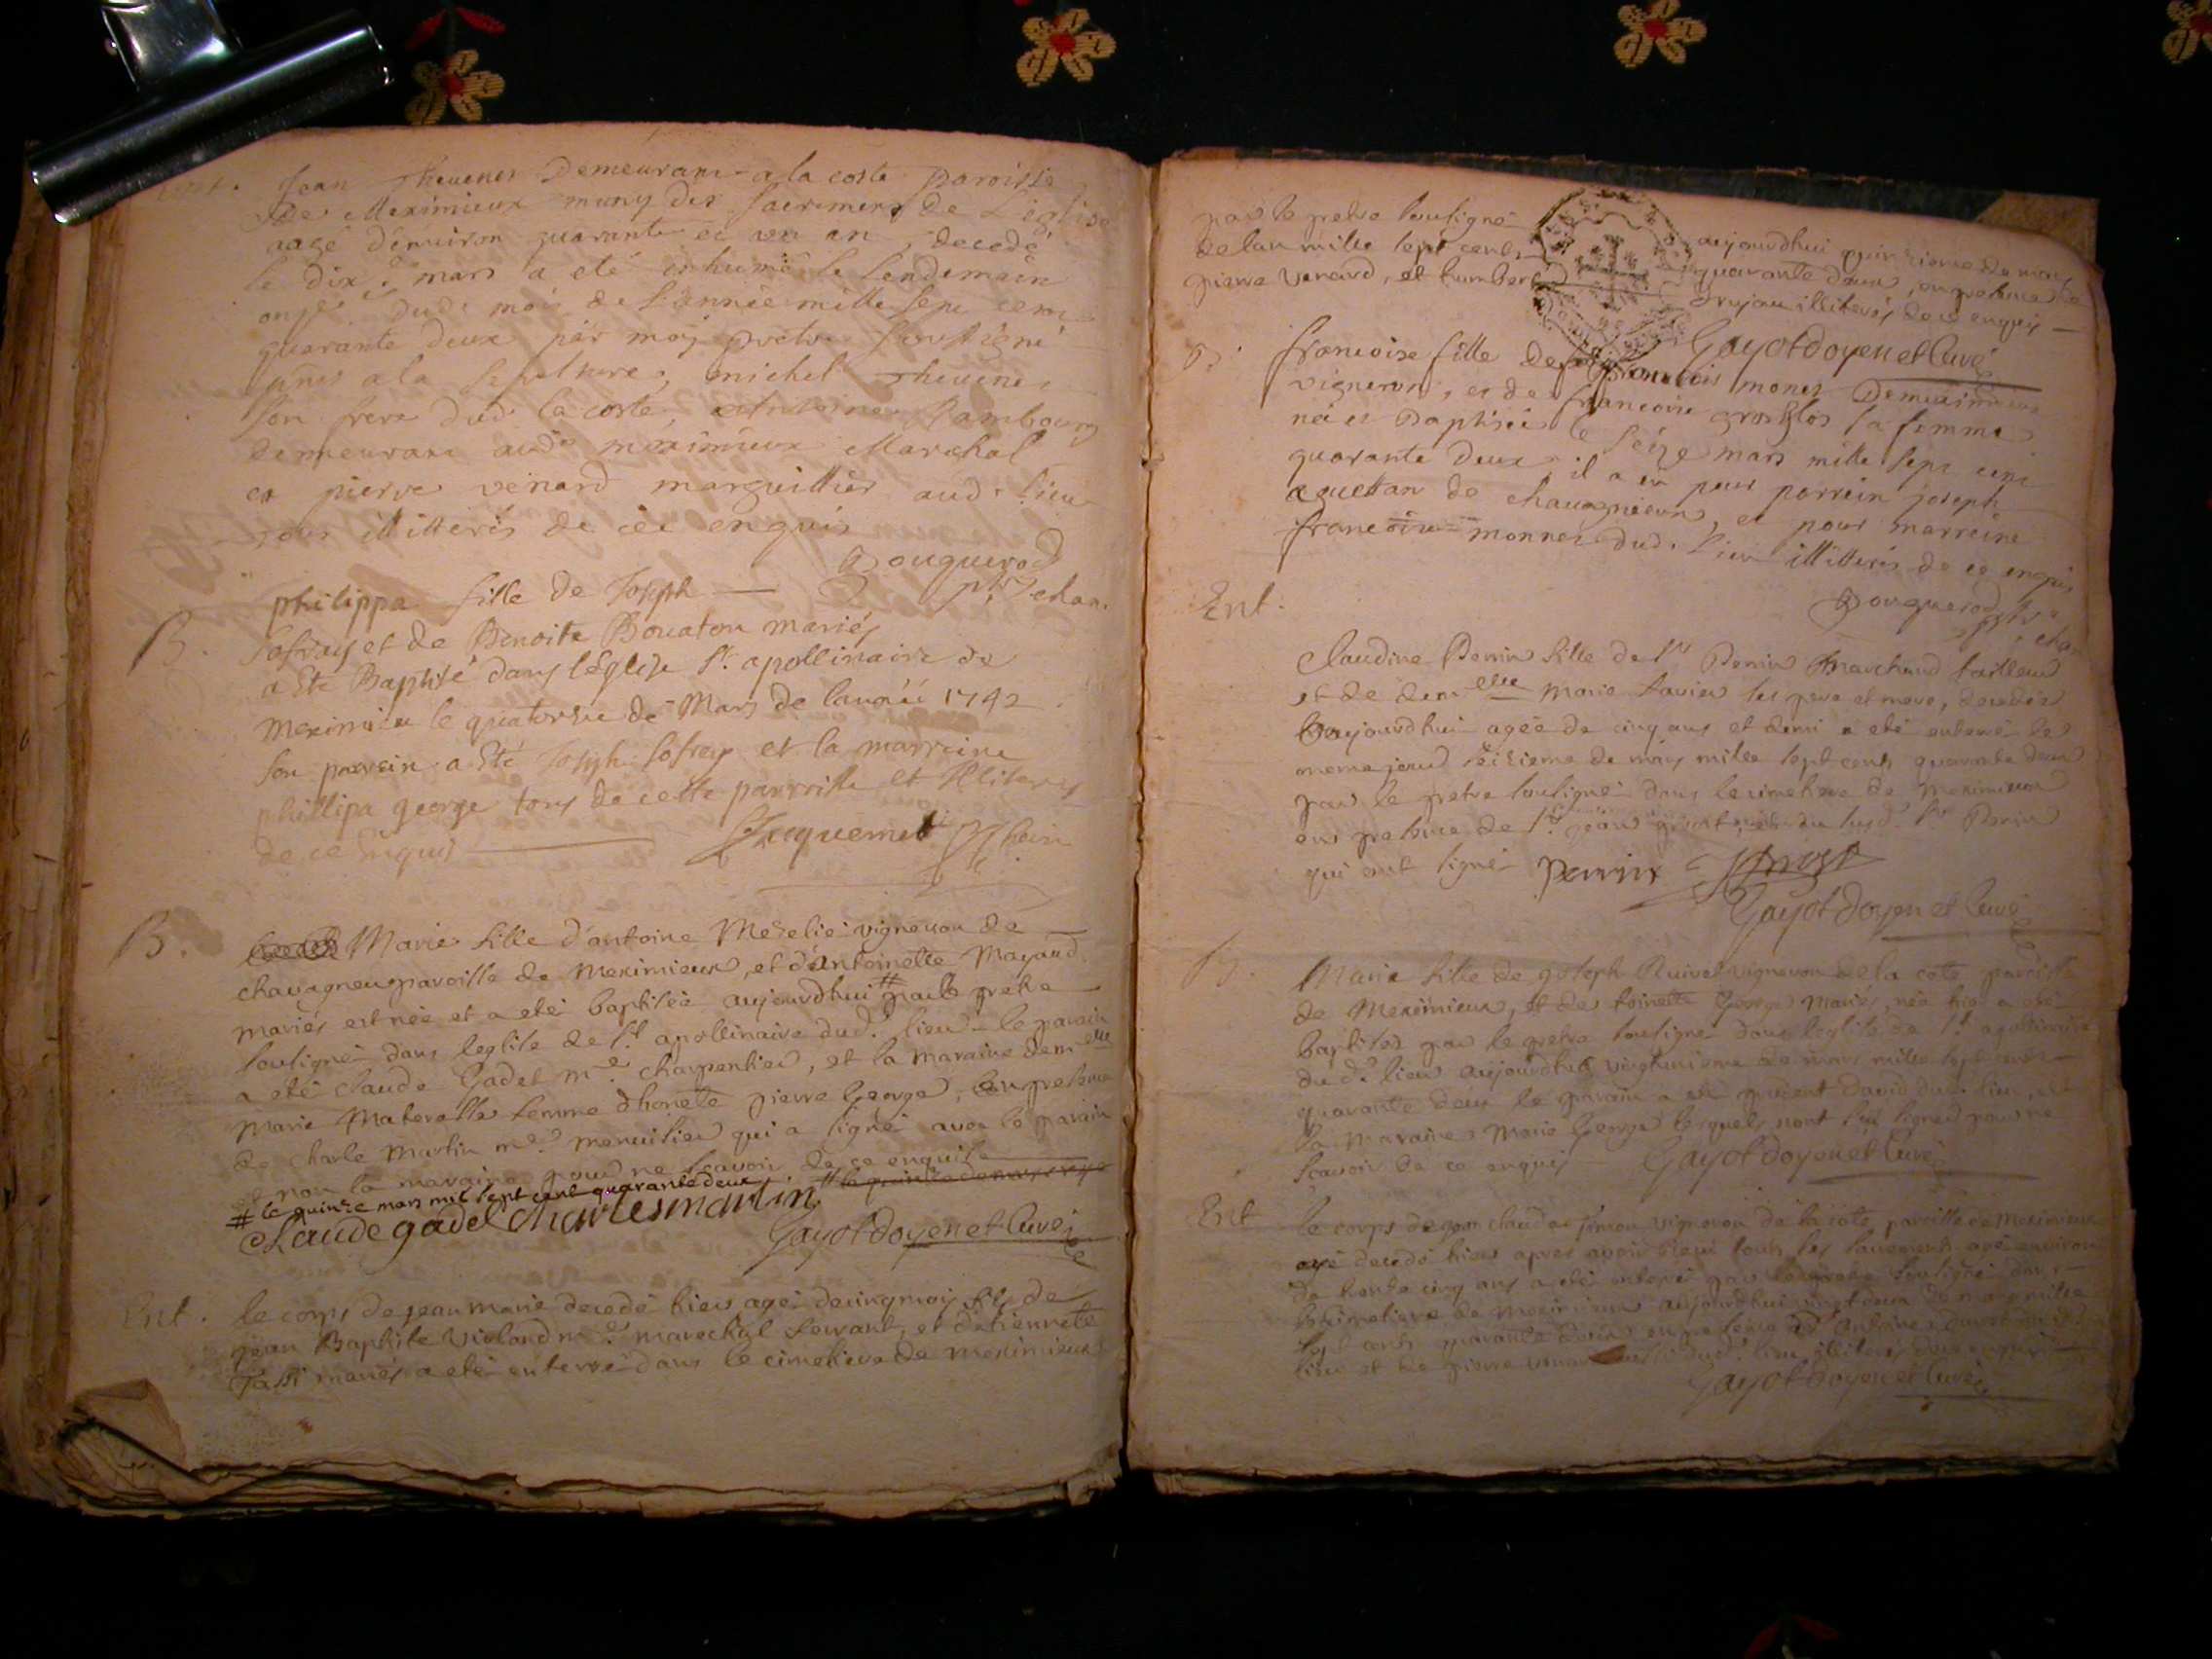 Ent.
Jean Thevenet Demeurant a la coste paroisse
de Meximieux muny des sacrements de L'eglise
aagé d'environ quarante et un an, decedé
le dix e mars a eté inhumé le lendemain
onze dud. mois de l'année mille sept cent
quarante deux par moy pretre soussigné
pnts a la sepulture, michel Thevenet
son frere dud. la coste, antoine Rambourg
demeurant aud. meximieux Marchal
et pierre venard marguillier aud. lieu
tous illitterés de ce enquis
Bouquerod
ptre chan.
B.
philippa fille de Joseph —
Sofray et de Benoite Bouaton mariés
a Eté Baptisé dans l'Eglise St. apollinaire de
Meximieu le quatorzie de Mars de lannéé 1742
son parrein a Eté Joseph Sofray et la marreine
phillipa george tous de cette parroisse et illiteres
de ce enquis
Jacquemet
B.
Marie fille d'antoine Meselié vigneron de
chavagneu paroisse de Meximieux, et d'Antoinette Mayand
mariés est née et a eté baptisée aujourdhui # par le pretre
sousigné dans leglise de St. apollinaire dud. lieu le parain
a eté claude Gadet me. charpentier, et la maraine demelle
Marie Materelle femme d'honete pierre George, en presence
de Charle Martin me. menuisier qui a signé avec le parain
et non la maraine pour ne scavoir de ce enquise
# le quinze mars mil sept cent quarante deux
Claude gadel Charles martin
Gayot doyen et curé
Ent.
le corps de jean marie decedé hier agé de cinq mois fils de
jean Baptiste Violand me. marechal ferrant, et d'etiennete
Tassi mariés a eté enterré dans le cimetiere de meximieux
par le pretre sousigné aujourdhui quinzieme de mars
de lan mille sept cents quarante deux, en presence de
pierre venard, et humbert Drujau illiterés de ce enquis —
Gayot doyen et curé
B.
francoise fille de francois monet De meximieux
vigneron, et de francoise grosclos sa femme
née et Baptisée le seize mars mille sept cent
quarante deux, il a eu pour parrein joseph
aguettan de chavagnieux, et pour marreine
francoise monnet dud. lieu illitterés de ce enquis
Bouquerod ptre
chan
Ent.
Claudine Perrin fille de Sr Perrin Marchand tailleur
et de demelle Marie Favier ses pere et mere, decedée
aujourdhui agée de cinq ans et demi a eté enterré le
meme jour seizieme de mars mille sept cents quarante deux
par le pretre sousigné dans le cimetiere de meximieux
en presence de Sr. jean et du susd. Sr Perrin
qui ont signé Perrin
Gayot doyen et curé
B.
Marie fille de joseph Ruivet vigneron de la cote paroisse
de Meximieux, et de toinette George mariés, née hier a eté
baptisée par le pretre sousigné dans leglise de St apollinaire
du d. lieu aujourdhui vingtunieme de mars mille sept cents
quarante deux le parain a eté David dud. lieu, et
la maraine Marie George lesquels n'ont pas signé pour ne
scavoir de ce enquis
Gayot doyen et curé
Ent
le corps de jean claude vigneron de la cote paroisse de Meximieux
decedé hier apres avoir recu tous les sacrements agé environ
de trente cinq ans a eté enterré par le pretre sousigné dans
le cimetiere de meximieux aujourdhui vingt deux de mars mille
sept cents quarante deux en presence d'Antoine
lieu et de pierre venard lieu illiteres de ce enquis
Gayot doyen et curé